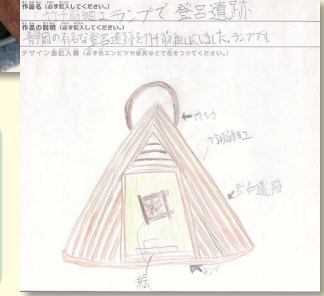 作品名（必ず記入してください。）
竹千筋細工ランプで登呂遺跡
作品の説明（必ず記入してください。）
静岡の有名な登呂遺跡を竹千筋細工にしました。ランプです。
デザイン画記入欄（必ず色エンピツや絵具などで色をつけてください。）
持ち手
千筋細工
登呂遺跡
ランプ
絵